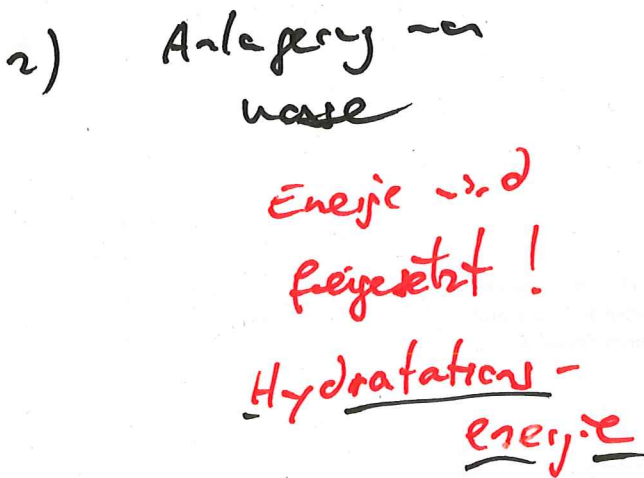 2) Anlagerung von
Wasser
Energie wird
freigesetzt!
Hydratations-
energie